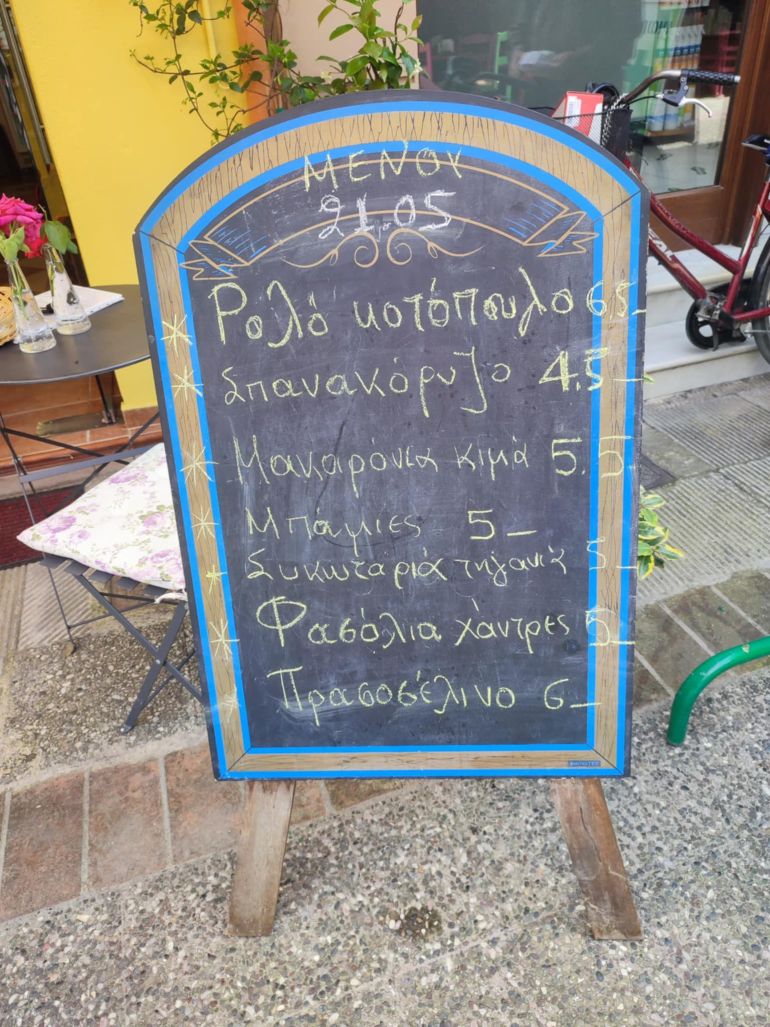 ΜΕΝΟΥ
21.05
Ρολό κοτόπουλο 6.5_
Σπανακόρυζο 4.5_
Μακαρόνια κιμά 5.5
Μπάμιες 5_
Συκωταριά τηγανιά 5_
Φασόλια χάντρες 5_
Πρασοσέλινο 6_